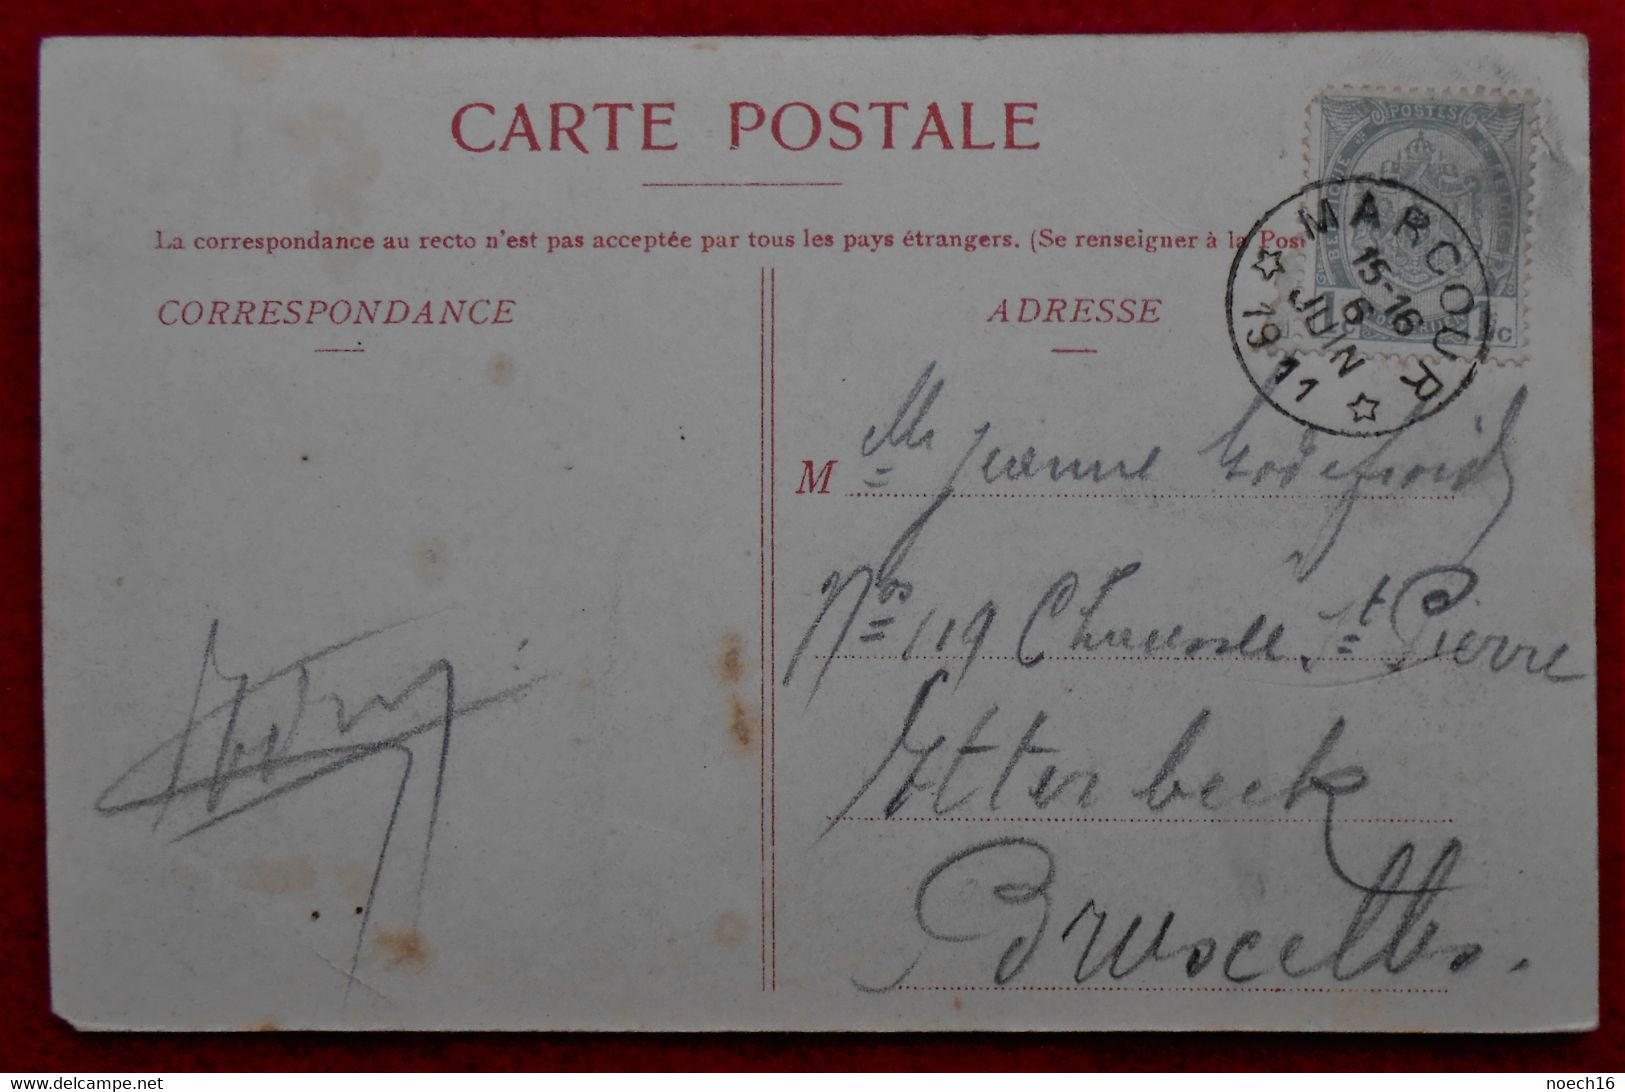 CARTE POSTALE
La correspondance au recto n'est pas acceptée par tous les pays étrangers. (Se renseigner à la Pos
CORRESPONDANCE
ADRESSE
POSTES
BELGIQUE
BELGIE
1c
1c
MARCOUR
15-16
6
JUIN
1911
M
Jeanne Godefroid
Nos 119 Chaussée St Pierre
Etterbeek
Bruxelles.
noech16